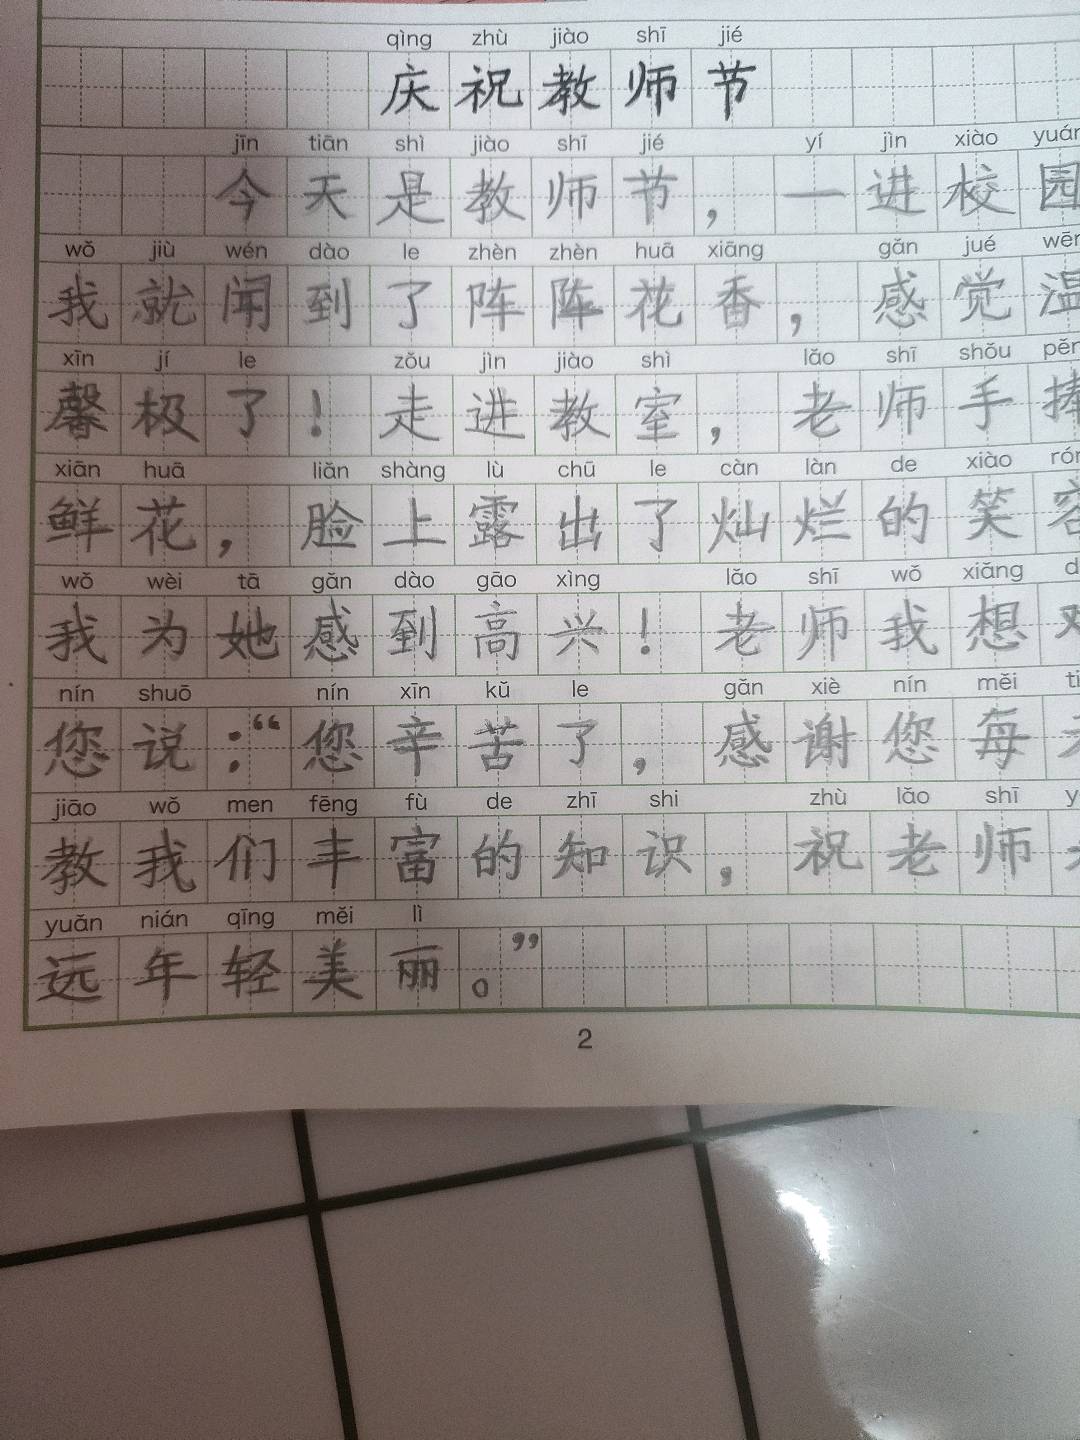 qìng zhù jiào shī jié
庆祝教师节
jīn tiān shì jiào shī jié yí jìn xiào yuán
今天是教师节，一进校园
wǒ jiù wén dào le zhèn zhèn huā xiāng gǎn jué wēn
我就闻到了阵阵花香，感觉温
xīn jí le zǒu jìn jiào shì lǎo shī shǒu pěn
馨极了！走进教室，老师手捧
xiān huā liǎn shàng lù chū le càn làn de xiào rón
鲜花，脸上露出了灿烂的笑容
wǒ wèi tā gǎn dào gāo xìng lǎo shī wǒ xiǎng d
我为她感到高兴！老师我想对
nín shuō nín xīn kǔ le gǎn xiè nín měi ti
您说：“您辛苦了，感谢您每天
jiāo wǒ men fēng fù de zhī shi zhù lǎo shī y
教我们丰富的知识，祝老师
yuǎn nián qīng měi lì
远年轻美丽。”
2